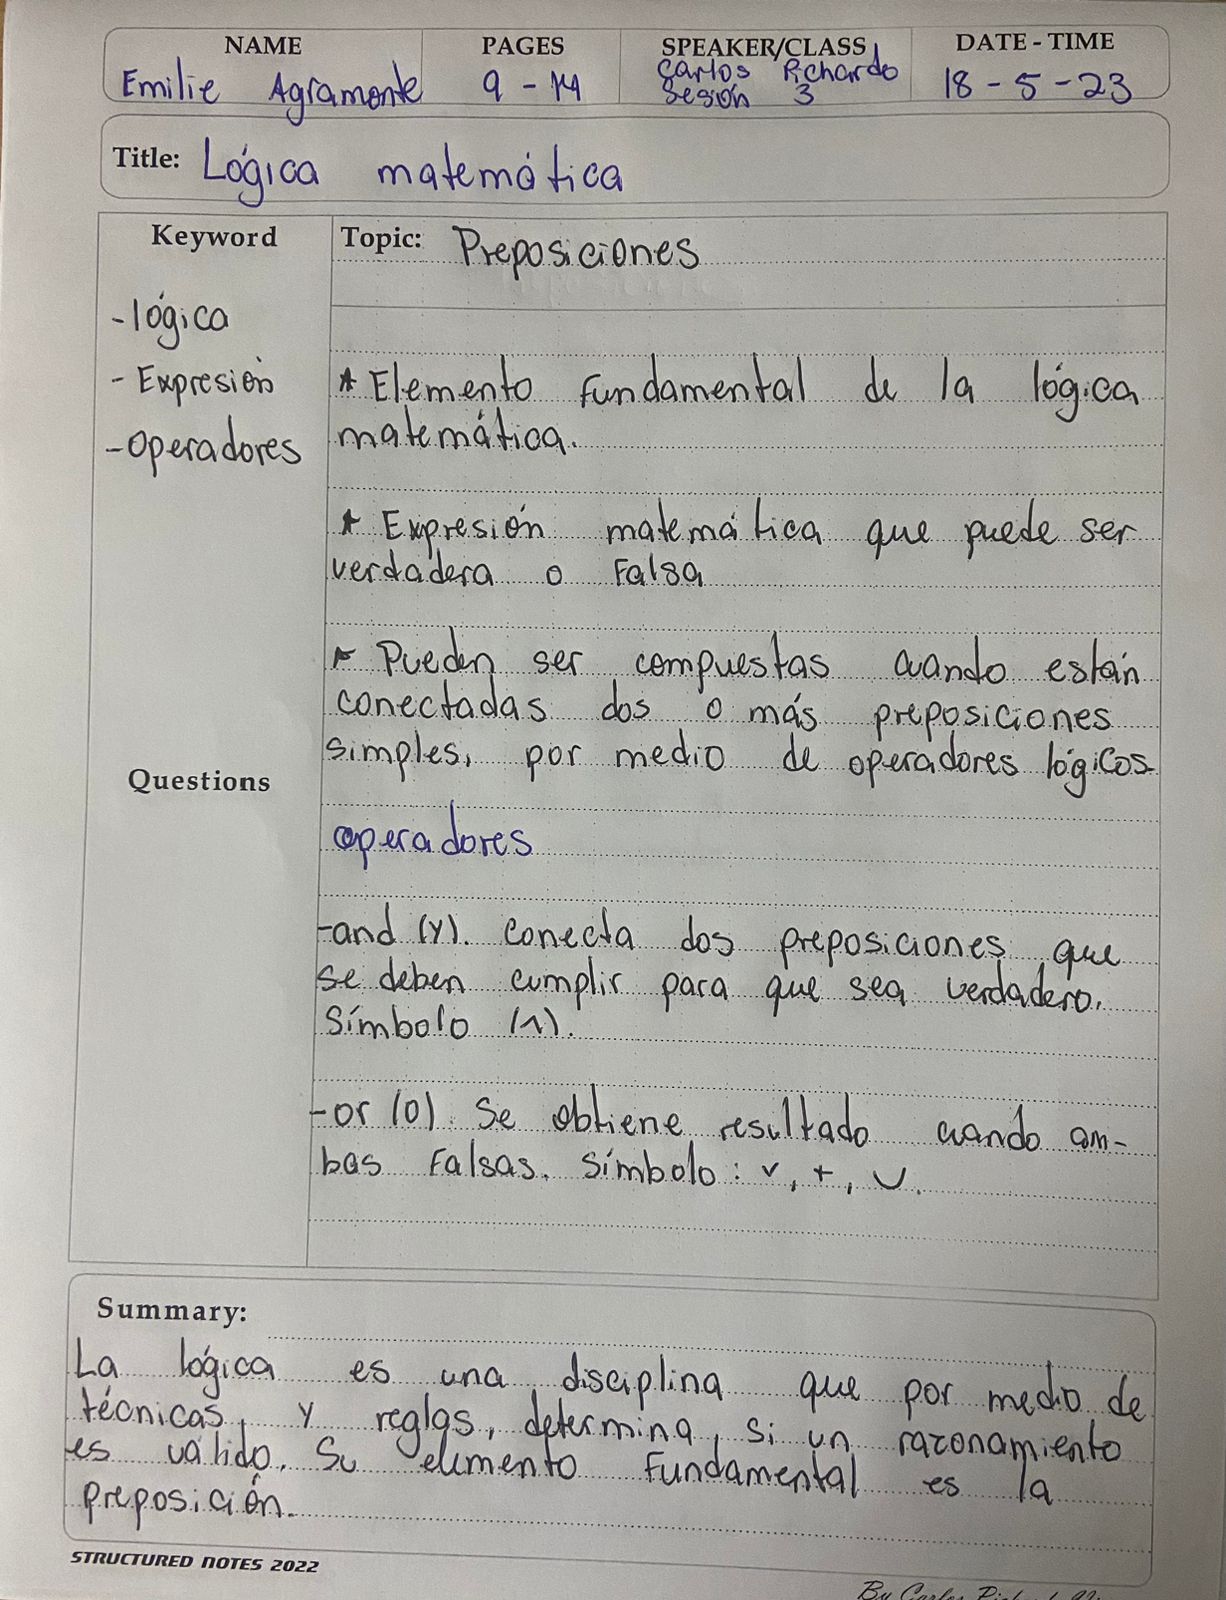 NAME PAGES SPEAKER/CLASS DATE - TIME
Emilie Agramonte 9 - 14 Carlos Pichardo Sesión 3 18 - 5 - 23
Title: Lógica matemática
Keyword
-lógica
- Expresión
-Operadores
Questions
Topic: Preposiciones
* Elemento fundamental de la lógica
matemática.
* Expresión matemática que puede ser
verdadera o falsa
* Pueden ser compuestas cuando están
conectadas dos o más preposiciones
simples, por medio de operadores lógicos
operadores
-and (y). Conecta dos preposiciones que
se deben cumplir para que sea verdadero.
Símbolo (^).
-or (o). Se obtiene resultado cuando am-
bas falsas. Símbolo: v, +, ∪.
Summary:
La lógica es una disciplina que por medio de
técnicas, y reglas, determina, si un razonamiento
es válido. Su elemento fundamental es la
preposición.
STRUCTURED NOTES 2022
By Carlos